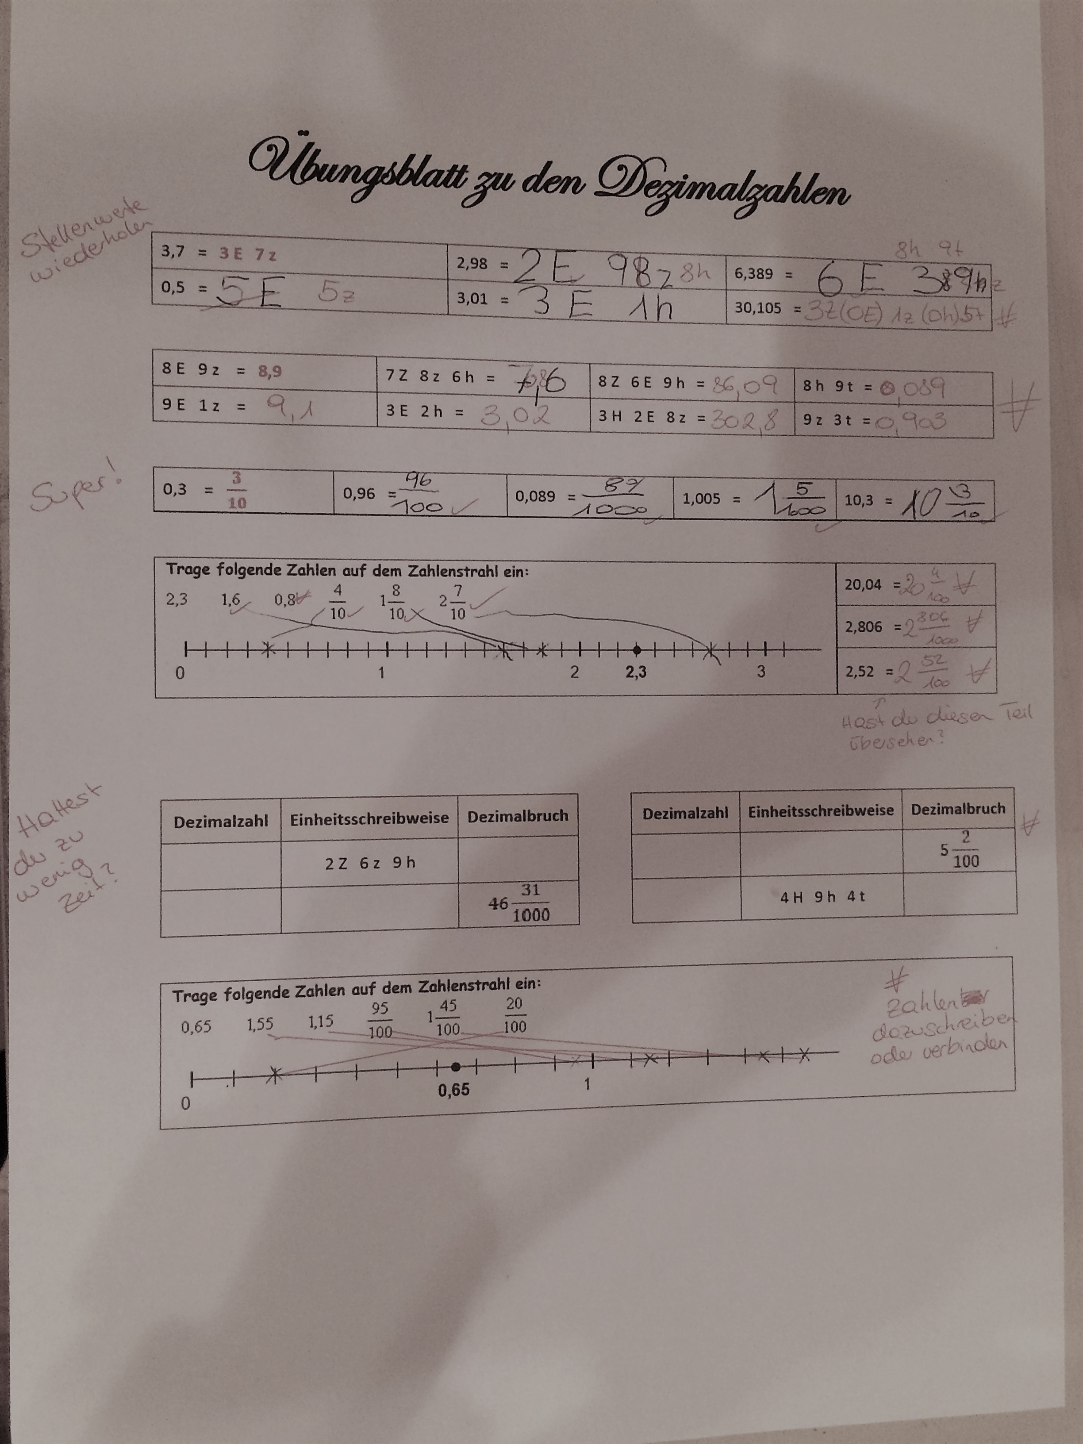 Übungsblatt zu den Dezimalzahlen
Stellenwerte
wiederholen
3,7 = 3E 7z
2,98 = 2E 98z 8h
6,389 = 6E 389h z
8h 9t
0,5 = 5E 5z
3,01 = 3E 1h
30,105 = 3Z(0E) 1z (0h)5t
8E 9z = 8,9
7Z 8z 6h =
8Z 6E 9h = 86,09
8h 9t = 0,089
9E 1z = 9,1
3E 2h = 3,02
3H 2E 8z = 302,8
9z 3t = 0,903
Super!
0,3 = 3/10
0,96 = 96/100
0,089 = 89/1000
1,005 = 1 5/1000
10,3 = 10 3/10
Trage folgende Zahlen auf dem Zahlenstrahl ein:
2,3 1,6 0,8 4/10 1 8/10 2 7/10
0 1 2 2,3 3
20,04 = 20 4/100
2,806 = 2 806/1000
2,52 = 2 52/100
Hast du diesen Teil
übersehen?
Hattest
du zu
wenig
Zeit?
Dezimalzahl Einheitsschreibweise Dezimalbruch
2Z 6z 9h
46 31/1000
Dezimalzahl Einheitsschreibweise Dezimalbruch
5 2/100
4H 9h 4t
Trage folgende Zahlen auf dem Zahlenstrahl ein:
0,65 1,55 1,15 95/100 1 45/100 20/100
0 0,65 1
Zahlen
dazuschreiben
oder verbinden